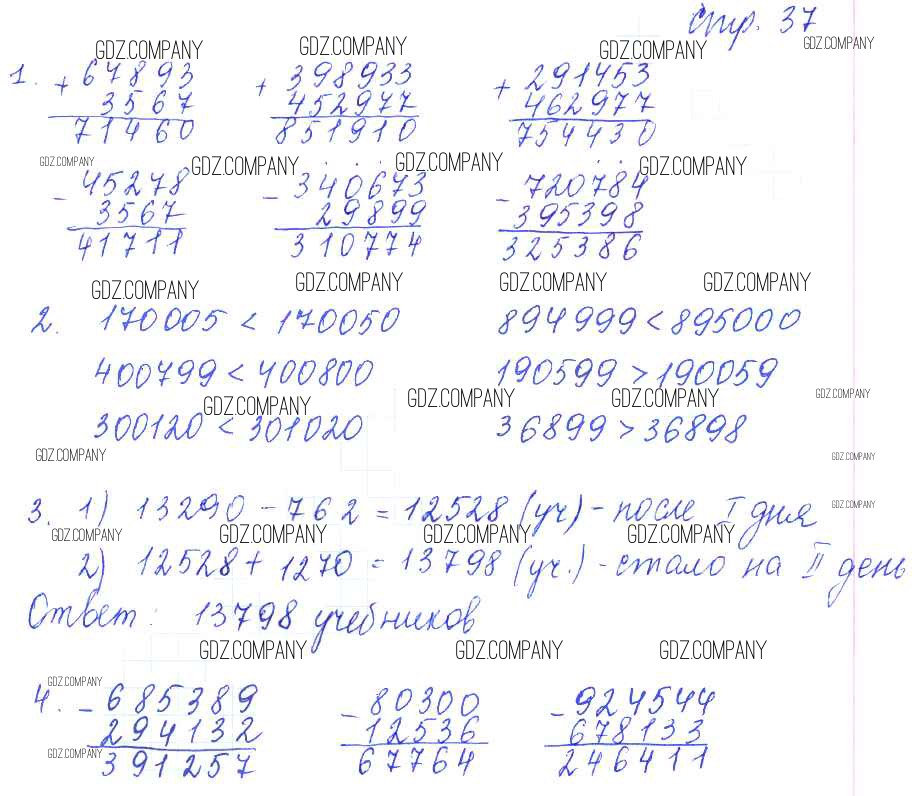 стр. 37
GDZ.COMPANY GDZ.COMPANY GDZ.COMPANY GDZ.COMPANY
1. + 67893 + 398933 + 291453
3567 452977 462977
71460 851910 754430
GDZ.COMPANY GDZ.COMPANY GDZ.COMPANY GDZ.COMPANY
- 45278 - 340673 - 720784
3567 29899 395398
41711 310774 325386
GDZ.COMPANY GDZ.COMPANY GDZ.COMPANY GDZ.COMPANY
2. 170005 < 170050 894999 < 895000
400799 < 400800 190599 > 190059
GDZ.COMPANY GDZ.COMPANY GDZ.COMPANY GDZ.COMPANY
300120 < 301020 36899 > 36898
GDZ.COMPANY GDZ.COMPANY
3. 1) 13290 - 762 = 12528 (уч) - после I дня
GDZ.COMPANY
GDZ.COMPANY GDZ.COMPANY GDZ.COMPANY GDZ.COMPANY
2) 12528 + 1270 = 13798 (уч.) - стало на II день
Ответ: 13798 учебников
GDZ.COMPANY GDZ.COMPANY GDZ.COMPANY
GDZ.COMPANY
4. - 685389 - 80300 - 924544
294132 12536 678133
GDZ.COMPANY
391257 67764 246411